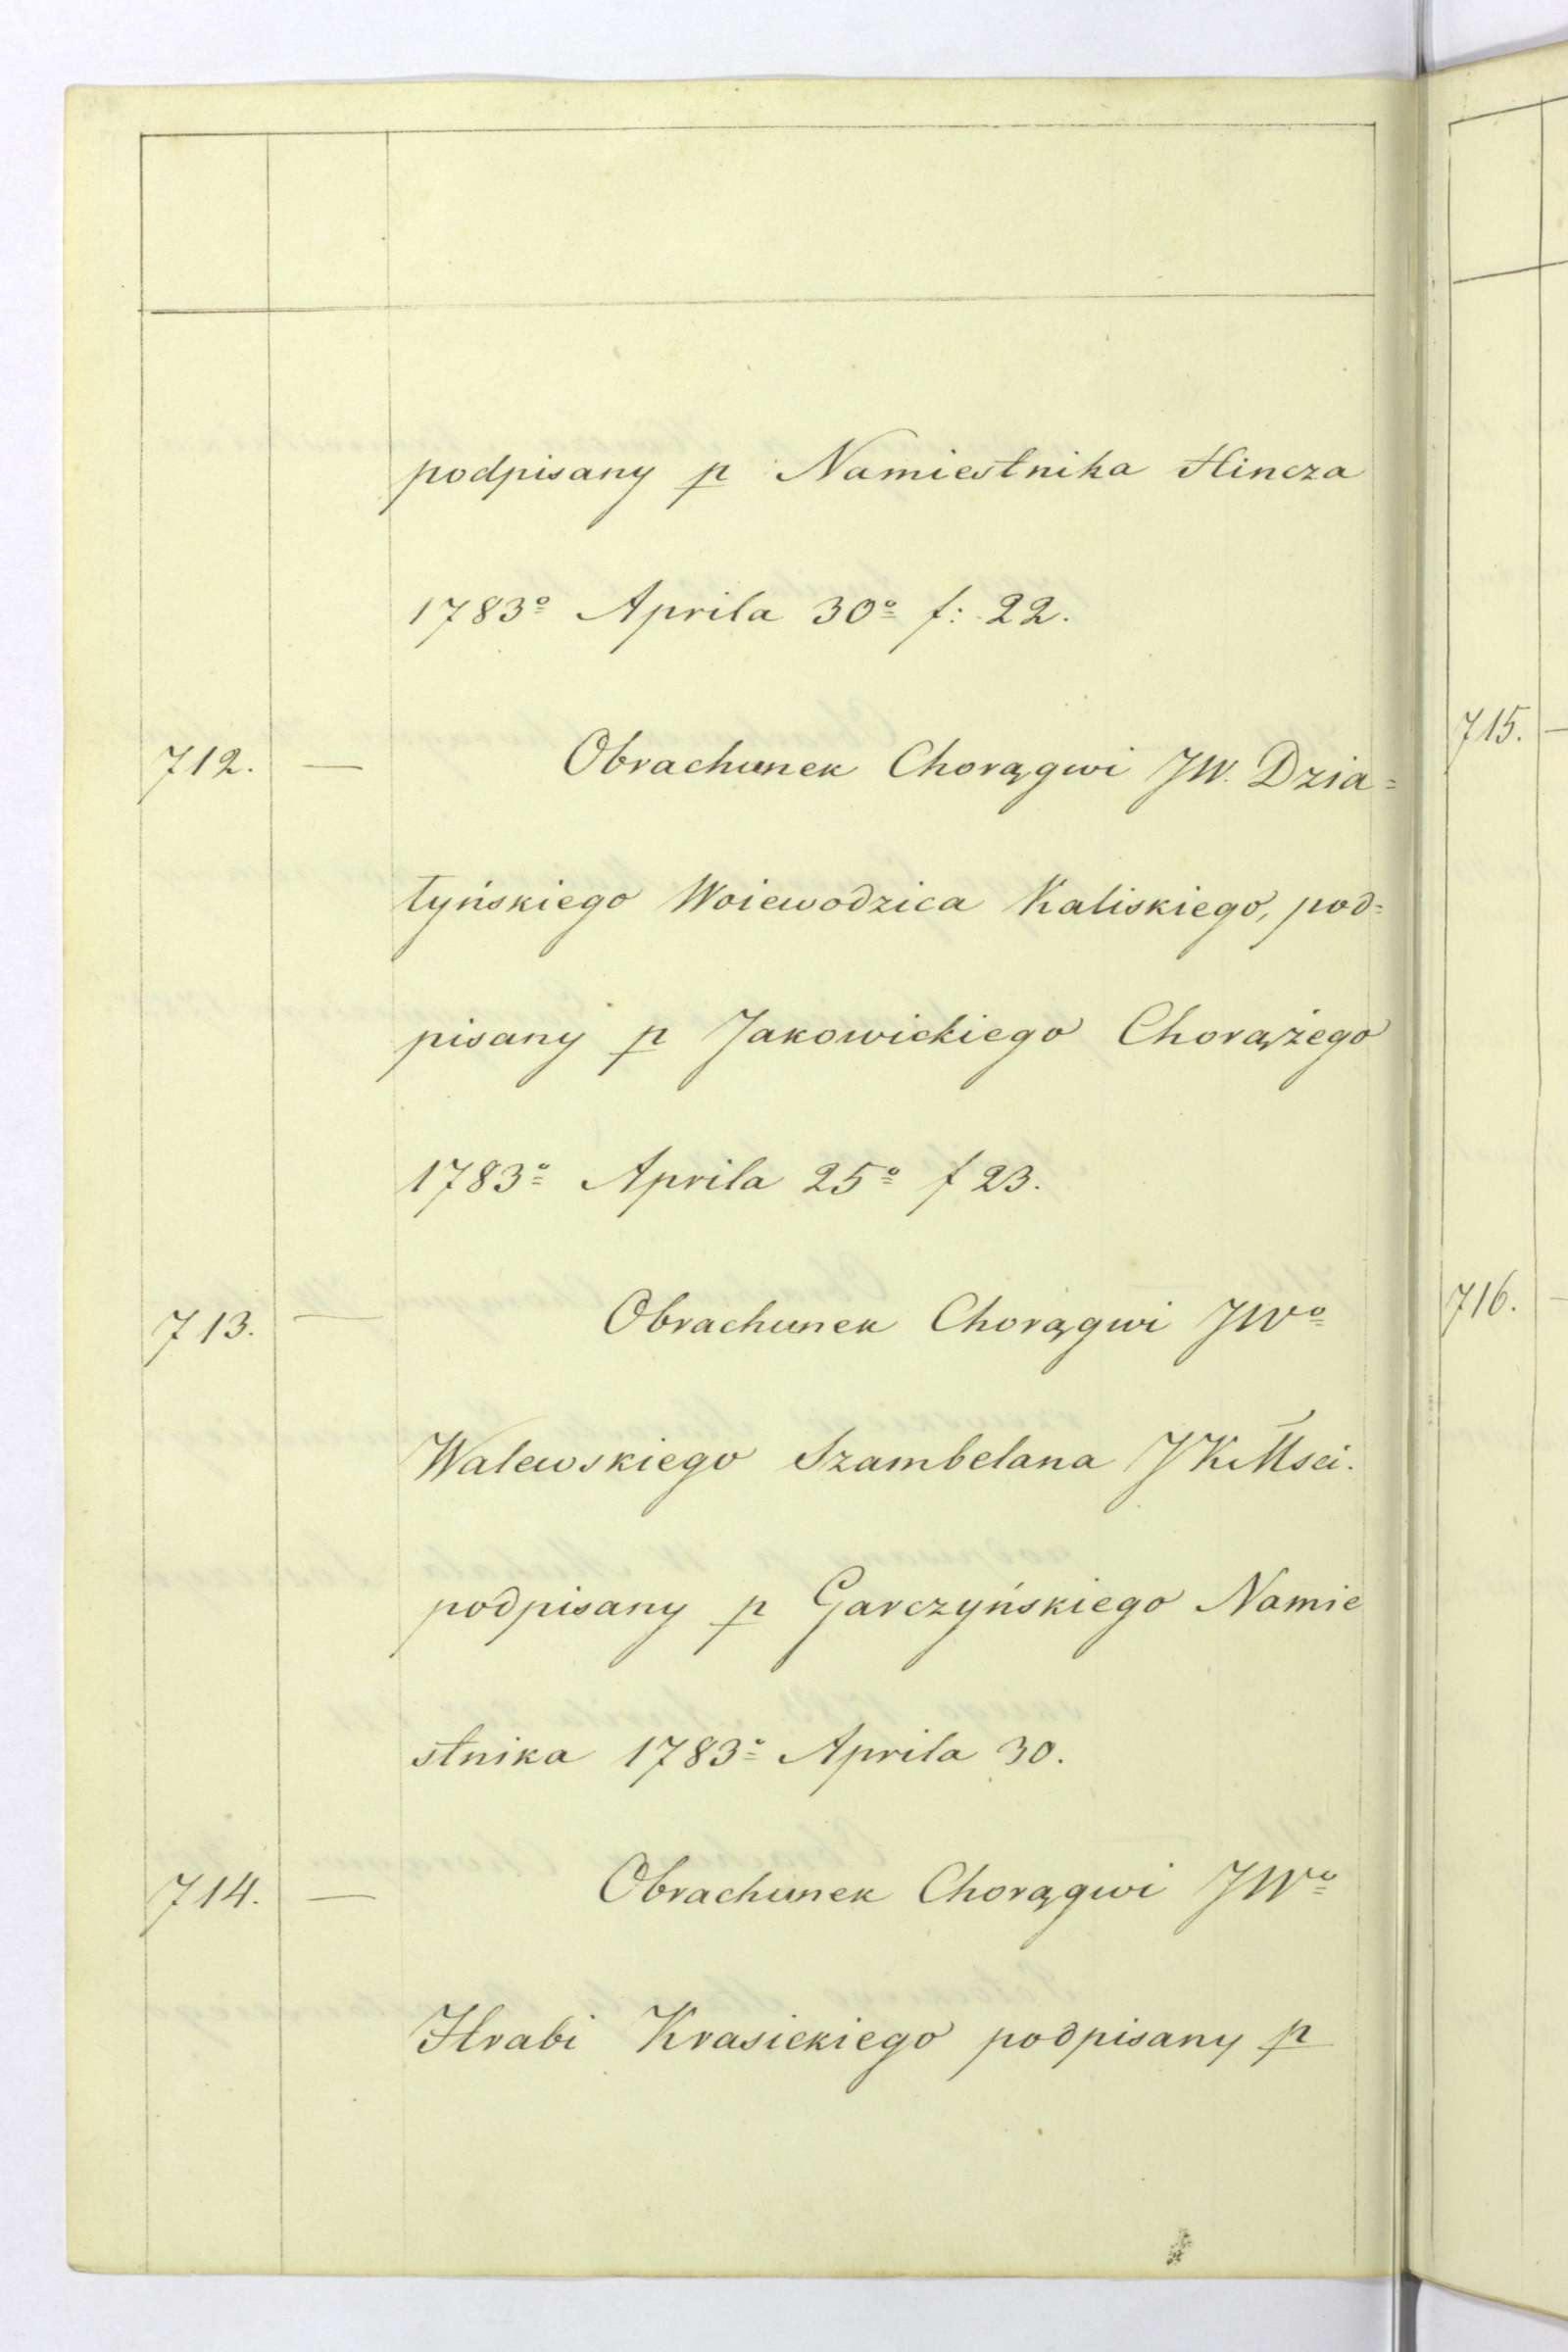 podpisany p Namiestnika Hincza
1783º Aprila 30º f: 22.
712. — Obrachunek Chorągwi JW. Dzia=
łyńskiego Woiewodzica Kaliskiego, pod=
pisany p Jakowickiego Chorążego
1783º Aprila 25º f 23.
713. — Obrachunek Chorągwi JWº
Walewskiego Szambelana JKMsci.
podpisany p Garczyńskiego Namie
stnika 1783º Aprila 30.
714. — Obrachunek Chorągwi JWº
Hrabi Krasickiego podpisany p
715. —
716. —